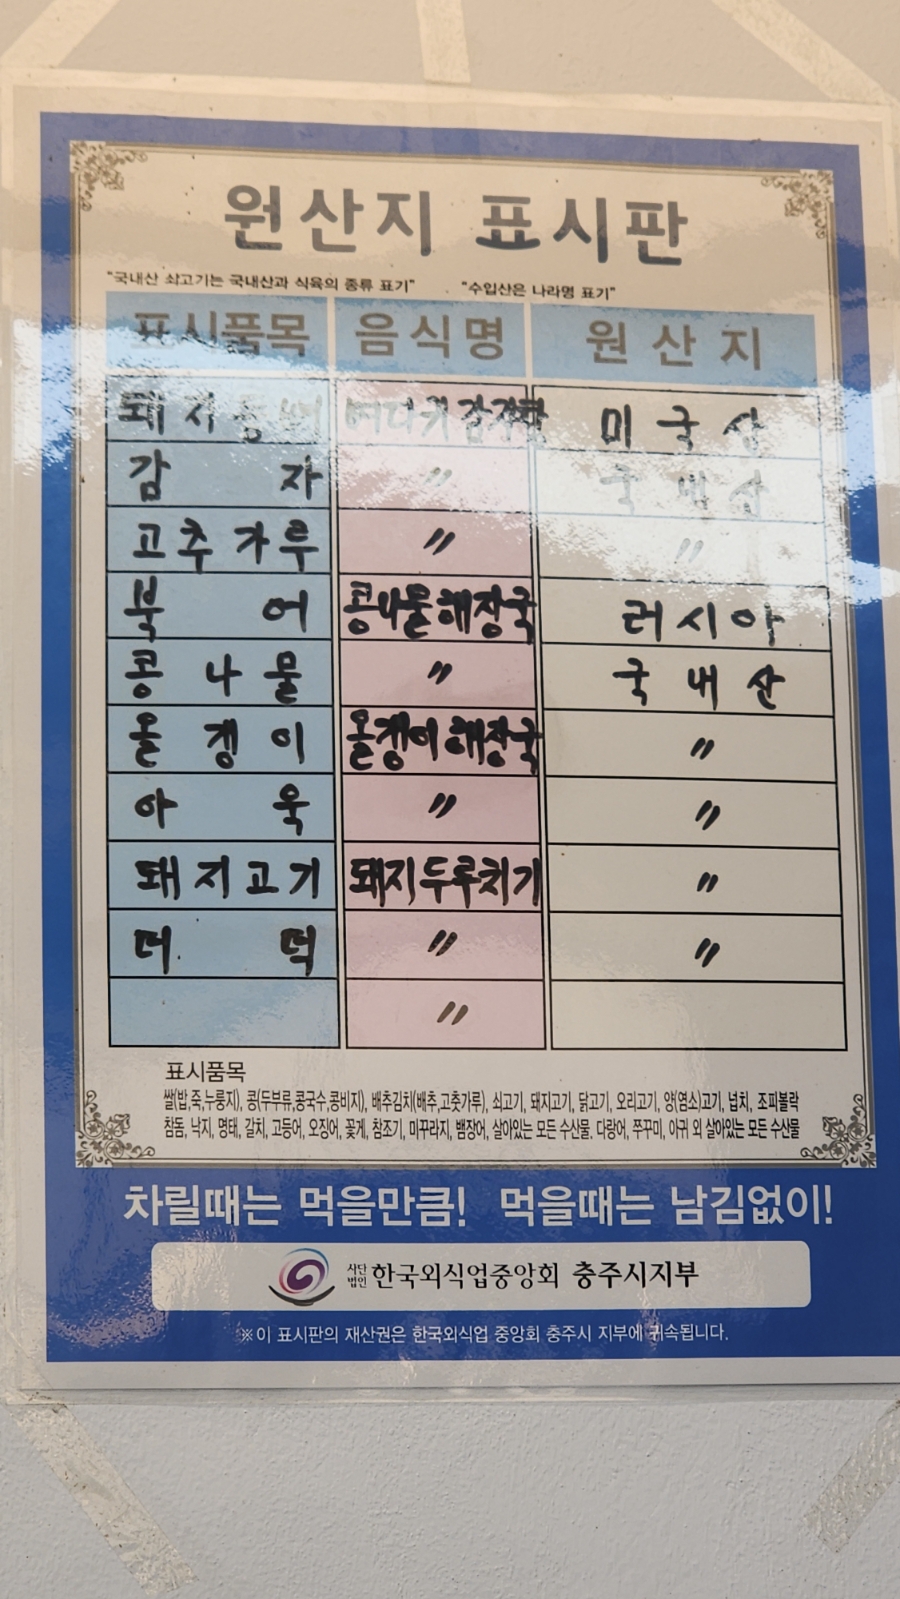 원산지 표시판
"국내산 쇠고기는 국내산과 식육의 종류 표기" "수입산은 나라명 표기"
표시품목 음식명 원산지
돼지등뼈 뼈다귀감자탕 미국산
감자 〃 국내산
고추가루 〃 〃
북어 콩나물해장국 러시아
콩나물 〃 국내산
올갱이 올갱이해장국 〃
아욱 〃 〃
돼지고기 돼지두루치기 〃
더덕 〃 〃
〃
표시품목
쌀(밥,죽,누룽지), 콩(두부류,콩국수,콩비지), 배추김치(배추,고춧가루), 쇠고기, 돼지고기, 닭고기, 오리고기, 양(염소)고기, 넙치, 조피볼락
참돔, 낙지, 명태, 갈치, 고등어, 오징어, 꽃게, 참조기, 미꾸라지, 뱀장어, 살아있는 모든 수산물. 다랑어, 쭈꾸미, 아귀 외 살아있는 모든 수산물
차릴때는 먹을만큼! 먹을때는 남김없이!
사단법인 한국외식업중앙회 충주시지부
※이 표시판의 재산권은 한국외식업 중앙회 충주시 지부에 귀속됩니다.